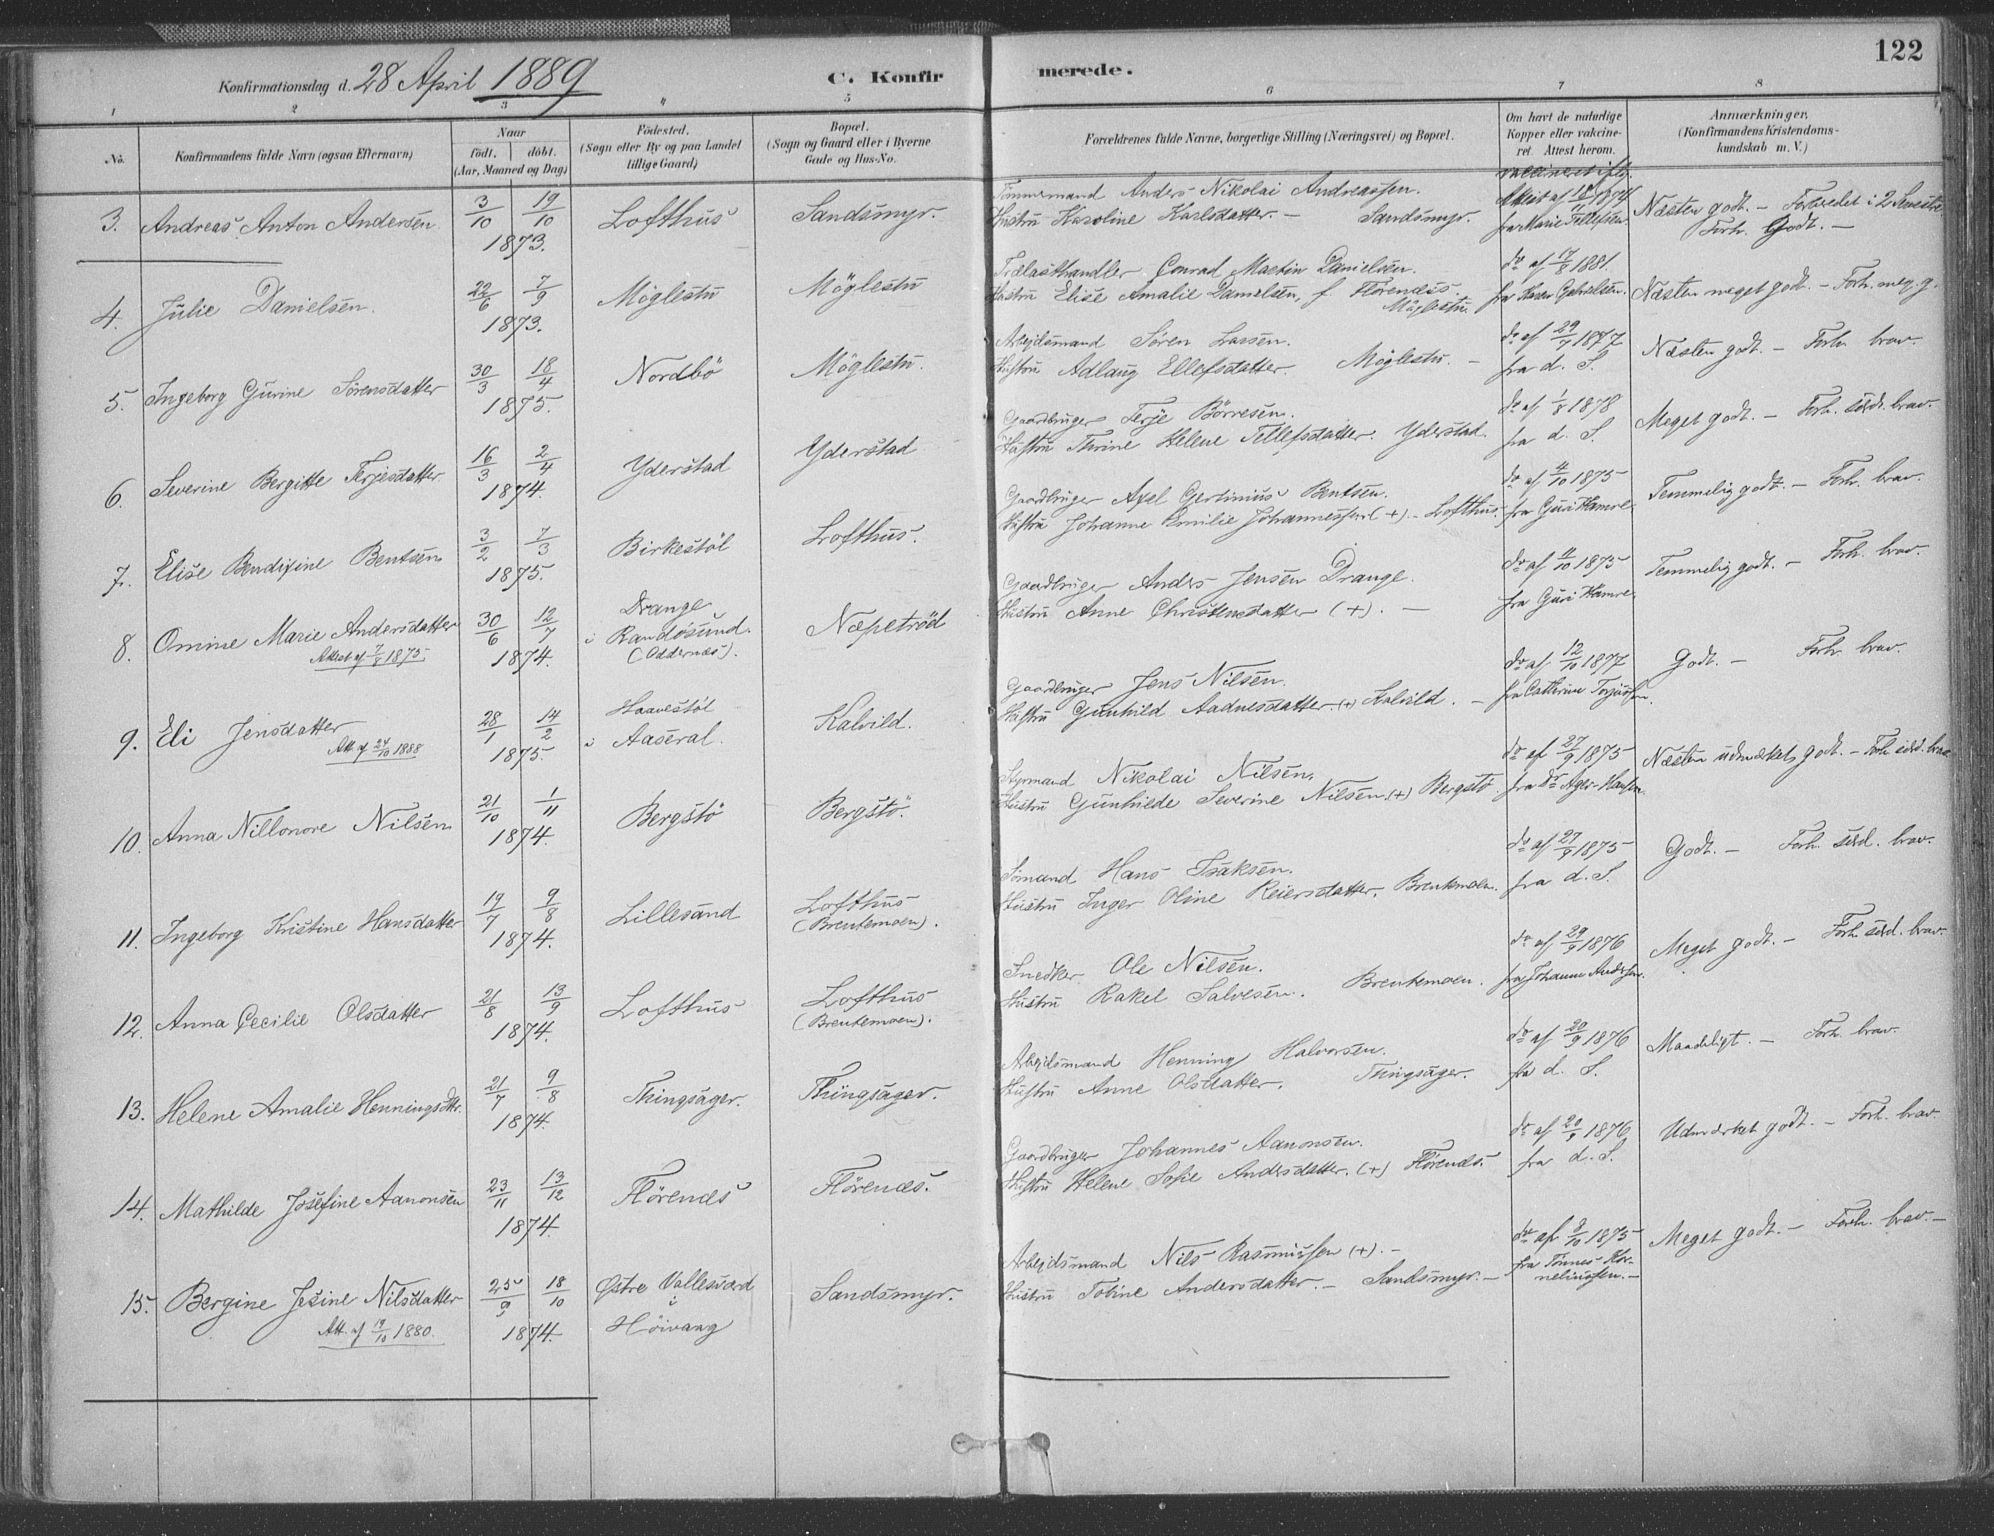 122
Konfirmationsdag d. 28 April 1889
C. Konfirmerede.
1 2 3 4 5 6 7 8
No. Konfirmandens fulde Navn (ogsaa Efternavn) Naar født, døbt. (Aar, Maaned og Dag) Fødested. (Sogn eller By og paa Landet tillige Gaard) Bopæl. (Sogn og Gaard eller i Byerne Gade og Hus-No. Forældrenes fulde Navne, borgerlige Stilling (Næringsvei) og Bopæl. Om havt de naturlige Kopper eller vaccineret. Attest herom. Anmærkninger. (Konfirmandens Kristendomskundskab m. V.)
3. Andreas Anton Andersen 3/10 19/10 1873. Lofthus Sandsmyr.
Tømmermand Anders Nikolai Andreassen.
Hustru Karoline Karlsdatter. — Sandsmyr.
1874
fra Marie Tellefsen.
Næsten godt. — Forh. Godt. —
4. Julie Danielsen. 22/6 7/9 1873. Möglestu Möglestu
Trælasthandler Conrad Martin Danielsen.
Hustru Elise Amalie Danielsen, f. Florenæss. Möglestu.
do af 17/8 1881.
fra Karen Gabrielsen.
Næsten meget godt. — Forh. meg. g.
5. Ingeborg Gurine Sørensdatter 30/3 18/4 1875. Nordbö Möglestu.
Arbejdsmand Søren Larsen.
Hustru Adlaug Ellefsdatter. Möglestu. —
do af 29/7 1877
fra d. S.
Næsten godt. — Forh. brav.
6. Severine Bergitte Terjesdatter 16/3 2/4 1874. Yderstad Yderstad
Gaardbruger Terje Börresen.
Hustru Thrine Helene Tellefsdatter. Yderstad.
do af 1/8 1878
fra d. S.
Meget godt. — Forh. særd. brav.
7. Elise Bendixine Bentsen 3/2 7/3 1875. Birkestöl Lofthus.
Gaardbruger Axel Gertinius Bentsen.
Hustru Johanne Emilie Johannessen (+) — Lofthus.
do af 4/10 1875
fra Guri Hamre.
Temmelig godt. — Forh. brav.
8. Omine Marie Andersdatter 30/6 12/7 1874. Drange i Randösund. (Oddernæs). Næpetröd
Attest af 7/8 1875.
Gaardbruger Anders Jensen Drange.
Hustru Anne Christensdatter (+). —
do af 4/10 1875
fra Guri Hamre.
Temmelig godt. — Forh. brav.
9. Eli Jensdatter 28/1 14/2 1875. Haavestöl i Aaseral. Kalvild.
Att. af 24/10 1888
Gaardbruger Jens Nilsen.
Hustru Gunhild Aadnesdatter. (+) Kalvild. —
do af 12/10 1877
fra Cathrine Torjussen.
Godt. — Forh. brav.
10. Anna Nillonore Nilsen 21/10 1/11 1874. Bergstö Bergstö.
Styrmand Nikolai Nilsen.
Hustru Gunhilde Severine Nilsen. (+) Bergstö.
do af 27/9 1875
fra Dr Ager-Hansen.
Næsten udmærket godt. — Forh. særd. brav
11. Ingeborg Kristine Hansdatter 19/7 9/8 1874. Lillesand Lofthus (Brentemoen).
Sömand Hans Isaksen.
Hustru Inger Oline Reiersdatter. Brentemoen.
do af 27/9 1875
fra d. S.
Godt. — Forh. særd. brav.
12. Anna Cecilie Olsdatter 21/8 13/9 1874. Lofthus Lofthus (Brentemoen).
Snedker Ole Nilsen.
Hustru Rakel Salvesen. Brentemoen.
do af 29/9 1876
fra Johanne Andersen.
Meget godt. — Forh. særd. brav.
13. Helene Amalie Henningsdtr. 21/7 9/8 1874. Thingsager. Thingsager.
Arbejdsmand Henning Halvorsen.
Hustru Anne Olsdatter. Thingsager.
do af 20/9 1876
fra d. S.
Maadeligt. — Forh. brav.
14. Mathilde Josefine Aanonsen 23/11 13/12 1874. Flörenæs Flörenæs.
Gaardbruger Johannes Aanonsen.
Hustru Helene Sofie Andersdatter. (+) Flörenæs.
do af 20/9 1876
fra d. S.
Udmærket godt. — Forh. brav.
15. Bergine Jesine Nilsdatter 25/9 18/10 1874. Østre Vallesværd i Höivaag Sandsmyr.
Att. af 19/10 1880.
Arbejdsmand Nils Rasmussen (+). —
Hustru Tobine Andersdatter. — Sandsmyr. —
do af 3/10 1875
fra Tönnes Kornelinssen. —
Meget godt. — Forh. brav. —